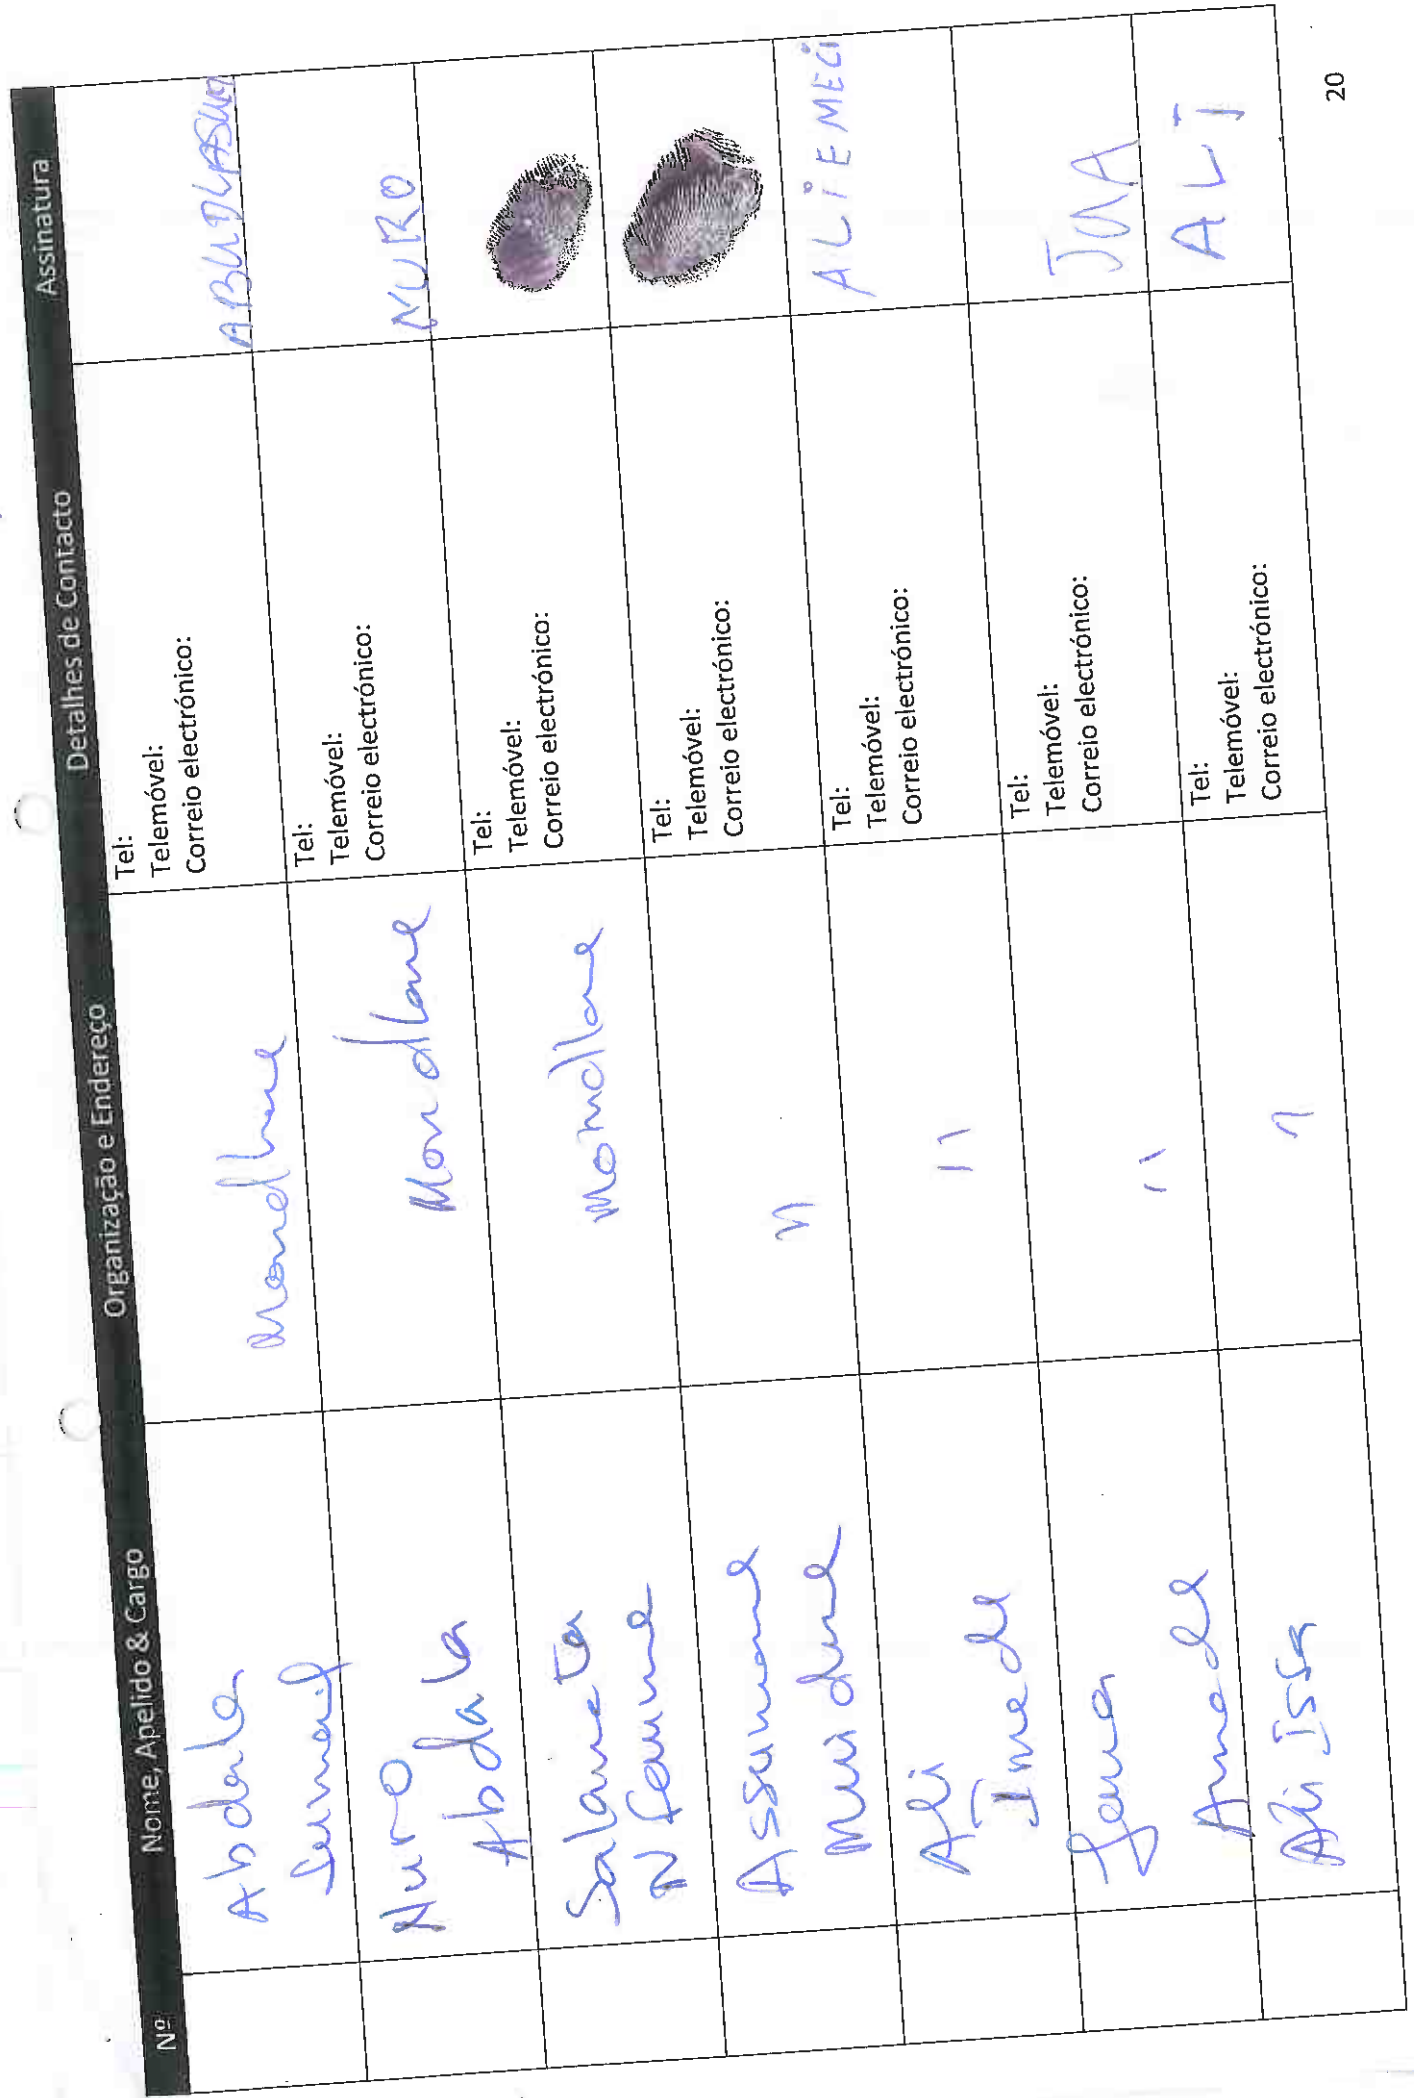 Nº Nome, Apelido & Cargo Organização e Endereço Detalhes de Contacto Assinatura
Abdala
Mondlane
Tel:
Telemóvel:
Correio electrónico:
Nuro
Abdala
Mondlane
Tel:
Telemóvel:
Correio electrónico:
NURO
Salameta
Mondlane
Tel:
Telemóvel:
Correio electrónico:
Assumane
Muidine
"
Tel:
Telemóvel:
Correio electrónico:
Ali
Imede
"
Tel:
Telemóvel:
Correio electrónico:
ALIEMECI
Amade
"
Tel:
Telemóvel:
Correio electrónico:
Ali Issa
"
Tel:
Telemóvel:
Correio electrónico:
ALI
20